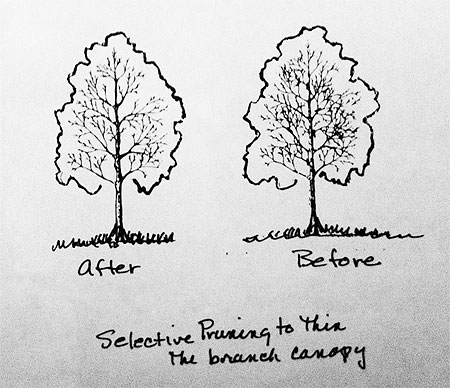 After
Before
Selective Pruning to Thin
The branch canopy